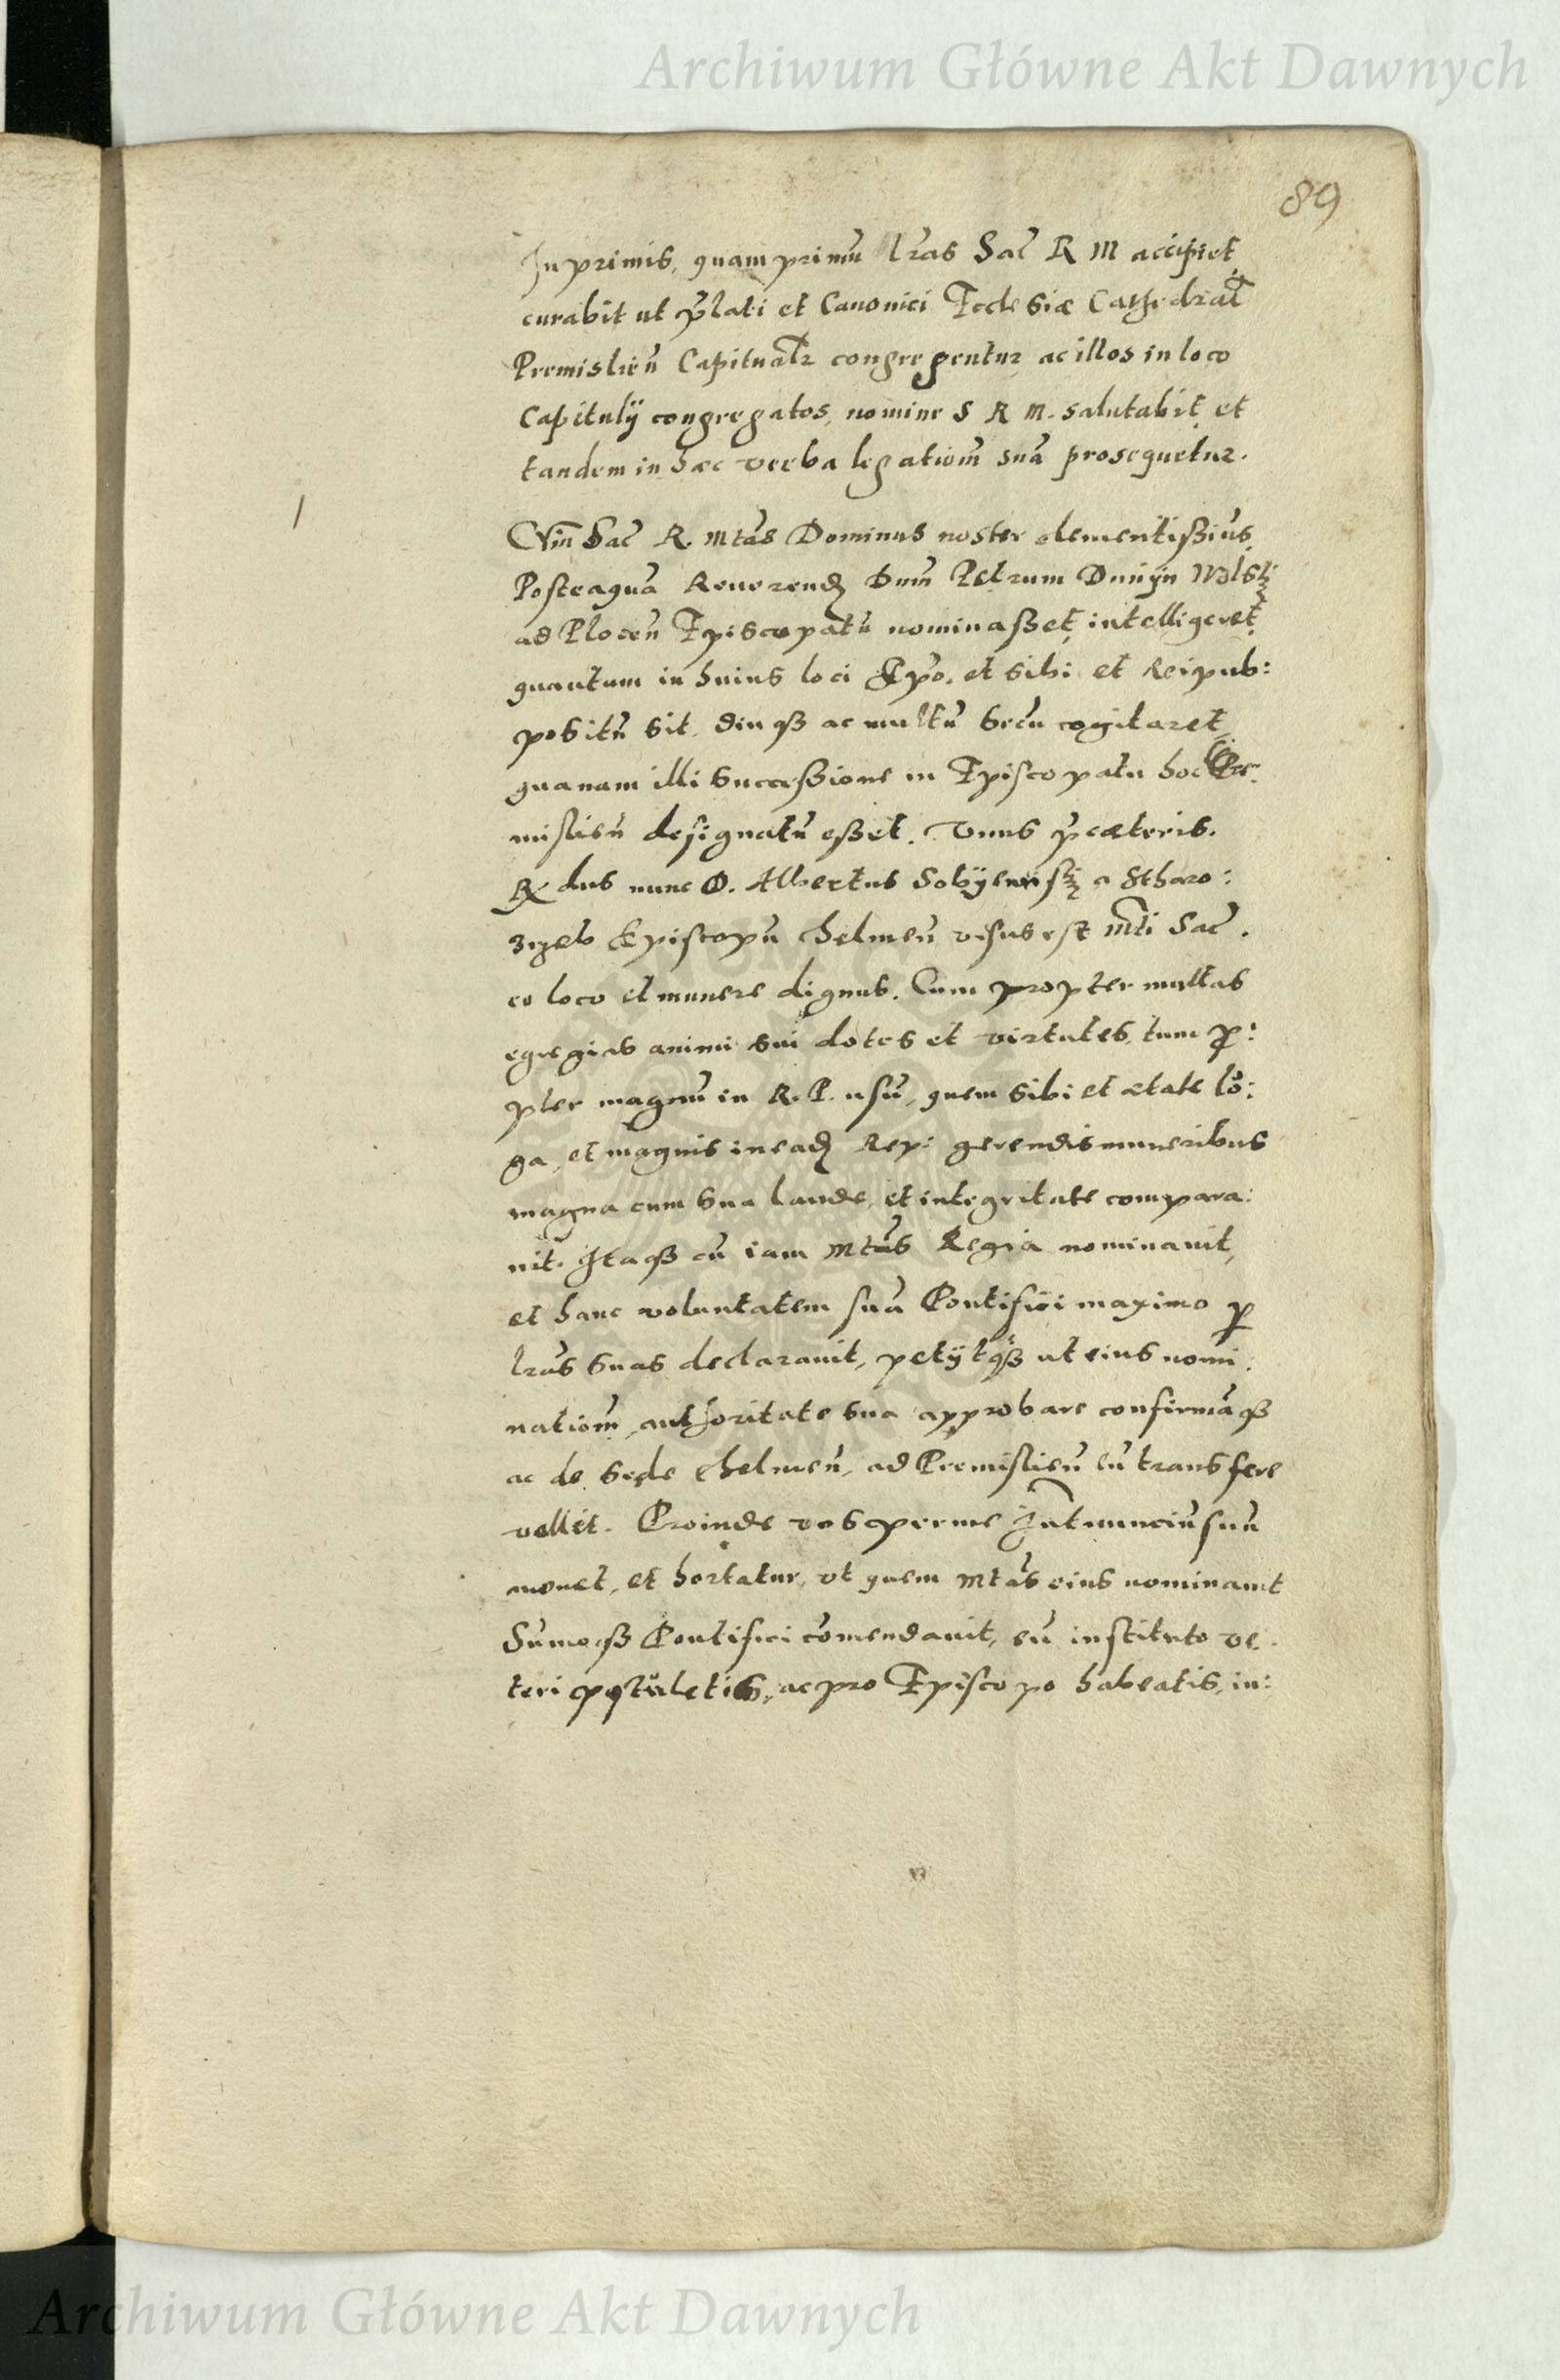 Archiwum Główne Akt Dawnych
89
In primis, quam primũ lr̃as Sac̃ R M accipiet,
curabit ut p̃lati et Canonici Ecclesiæ Cathedral̃
Premislieñ Capitual̃r congregentur, ac illos in loco
Capitulij congregatos, nomine S R M. salutabit, et
tandem in hæc verba legatiom̃ suã prosequetur.
1
Cum̃ Sac̃ R. Mtãs Dominus noster clementißiũs,
Posteaquã Reuerend̃ Dum̃ Petrum Dunÿn Wolsk̃
ad Ploceñ Episcopatũ nominaßet, intelligeret,
quantum in huius loci Ep̃o, et sibi et Reipub:
positũ sit, diuqß ac multũ secũ cogitaret,
quanam illi succeßione in Episcopatu hoc Pre:
mislieñ designatũ eßet. Vnus p̃ cæteris.
R dus nunc D. Albertus Sobÿensk̃ a Stharo:
Episcopũ Chelmeñ visus est Mti Sac̃.
eo loco et munere dignus. Cum propter multas
egregias animi sui dotes et virtutes, tum p̱:
pter magnũ in R. P. usũ, quem sibi et ætate lõ:
ga, et magnis in ead̃ Rep: gerendis muneribus
magna cum sua laude, et integritate compara:
uit. Itaqß cũ iam Mtãs Regia nominauit,
et hanc voluntatem suã Pontifici maximo p̱
lr̃as suas declarauit, petijtqß ut eius nomi:
natiom̃, authoritate sua approbare confirmãqß
ac de sede Chelmeñ, ad Premislieñ eũ transfere
vellet. Proinde vos per me Int̃nunciũ suũ
monet, et hortatur, ut quem Mtãs eius nominauit
Sũmoqß Pontifici cõmendauit, eũ instituto ve:
teri postuletis, ac pro Episcopo habeatis, in:
Archiwum Główne Akt Dawnych